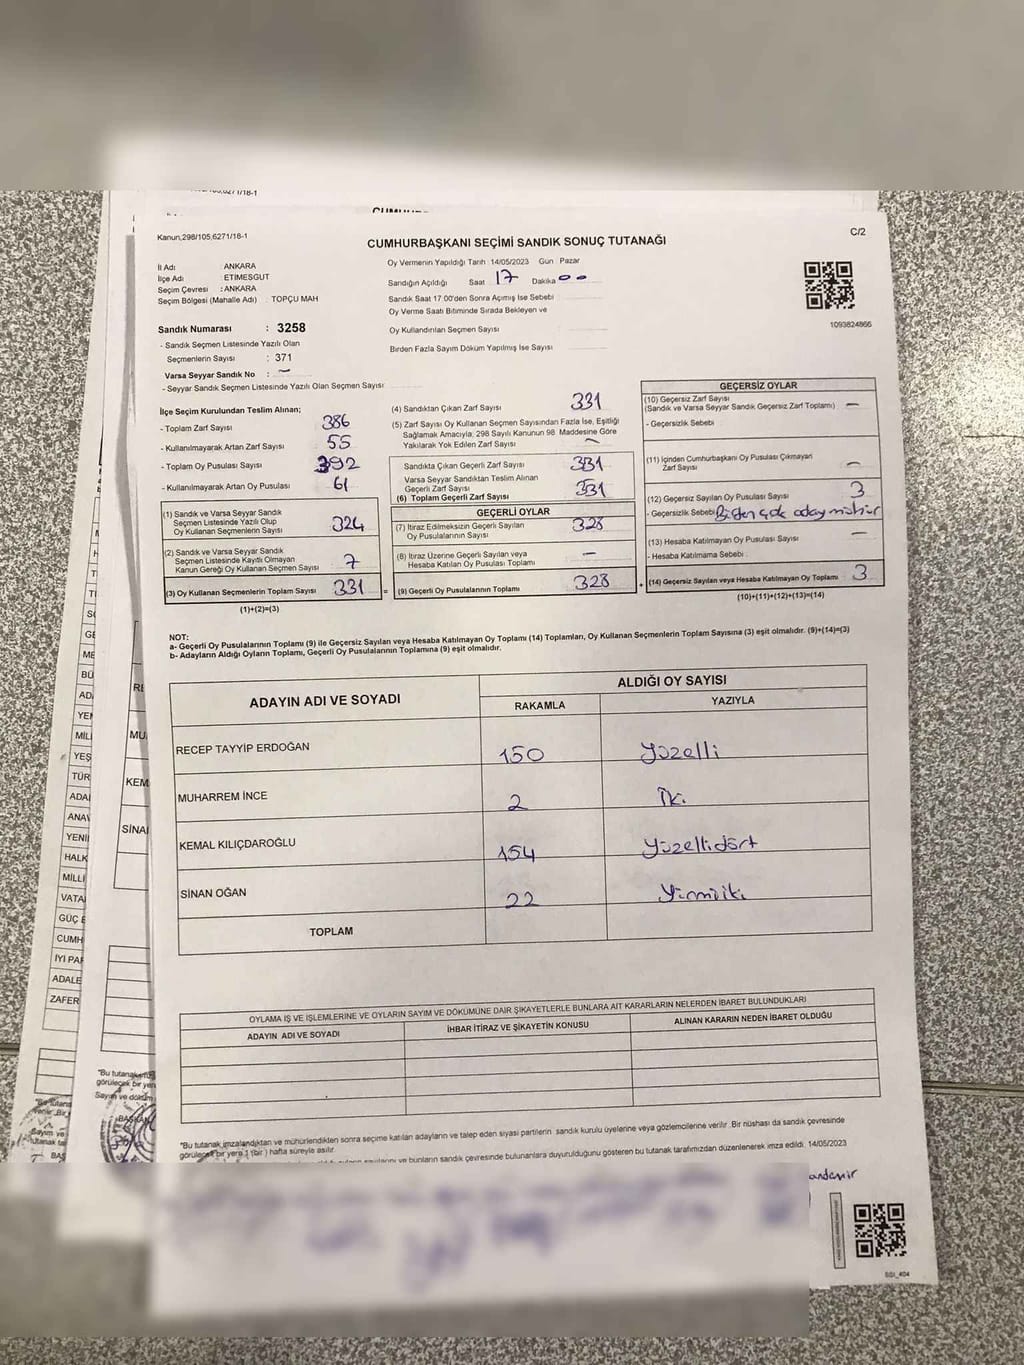 Kanun,298/105,6271/18-1
CUMHURBAŞKANI SEÇİMİ SANDIK SONUÇ TUTANAĞI
C/2
İl Adı : ANKARA
İlçe Adı : ETİMESGUT
Seçim Çevresi : ANKARA
Seçim Bölgesi (Mahalle Adı) : TOPÇU MAH
Sandık Numarası : 3258
- Sandık Seçmen Listesinde Yazılı Olan
Seçmenlerin Sayısı : 371
Varsa Seyyar Sandık No : -
- Seyyar Sandık Seçmen Listesinde Yazılı Olan Seçmen Sayısı
Oy Vermenin Yapıldığı Tarih : 14/05/2023 Gün : Pazar
Sandığın Açıldığı Saat 17 Dakika 00
Sandık Saat 17:00'den Sonra Açımış İse Sebebi
Oy Verme Saati Bitiminde Sırada Bekleyen ve
Oy Kullandırılan Seçmen Sayısı
Birden Fazla Sayım Döküm Yapılmış İse Sayısı
1093824866
İlçe Seçim Kurulundan Teslim Alınan;
- Toplam Zarf Sayısı 386
- Kullanılmayarak Artan Zarf Sayısı 55
- Toplam Oy Pusulası Sayısı 392
- Kullanılmayarak Artan Oy Pusulası 61
(1) Sandık ve Varsa Seyyar Sandık
Seçmen Listesinde Yazılı Olup
Oy Kullanan Seçmenlerin Sayısı 324
(2) Sandık ve Varsa Seyyar Sandık
Seçmen Listesinde Kayıtlı Olmayan
Kanun Gereği Oy Kullanan Seçmen Sayısı 7
(3) Oy Kullanan Seçmenlerin Toplam Sayısı 331
(1)+(2)=(3)
(4) Sandıktan Çıkan Zarf Sayısı 331
(5) Zarf Sayısı Oy Kullanan Seçmen Sayısından Fazla İse, Eşitliği
Sağlamak Amacıyla; 298 Sayılı Kanunun 98. Maddesine Göre
Yakılarak Yok Edilen Zarf Sayısı -
Sandıkta Çıkan Geçerli Zarf Sayısı 331
Varsa Seyyar Sandıktan Teslim Alınan
Geçerli Zarf Sayısı
(6) Toplam Geçerli Zarf Sayısı 331
GEÇERLİ OYLAR
(7) İtiraz Edilmeksizin Geçerli Sayılan
Oy Pusulalarının Sayısı 328
(8) İtiraz Üzerine Geçerli Sayılan veya
Hesaba Katılan Oy Pusulası Toplamı -
= (9) Geçerli Oy Pusulalarının Toplamı 328
GEÇERSİZ OYLAR
(10) Geçersiz Zarf Sayısı
(Sandık ve Varsa Seyyar Sandık Geçersiz Zarf Toplamı) -
- Geçersizlik Sebebi
(11) İçinden Cumhurbaşkanı Oy Pusulası Çıkmayan
Zarf Sayısı -
(12) Geçersiz Sayılan Oy Pusulası Sayısı 3
- Geçersizlik Sebebi Birden çok aday mühür
(13) Hesaba Katılmayan Oy Pusulası Sayısı -
- Hesaba Katılmama Sebebi
+ (14) Geçersiz Sayılan veya Hesaba Katılmayan Oy Toplamı 3
(10)+(11)+(12)+(13)=(14)
NOT:
a- Geçerli Oy Pusulalarının Toplamı (9) ile Geçersiz Sayılan veya Hesaba Katılmayan Oy Toplamı (14) Toplamları, Oy Kullanan Seçmenlerin Toplam Sayısına (3) eşit olmalıdır. (9)+(14)=(3)
b- Adayların Aldığı Oyların Toplamı, Geçerli Oy Pusulalarının Toplamına (9) eşit olmalıdır.
ADAYIN ADI VE SOYADI
ALDIĞI OY SAYISI
RAKAMLA YAZIYLA
RECEP TAYYİP ERDOĞAN 150 Yüzelli
MUHARREM İNCE 2 İki
KEMAL KILIÇDAROĞLU 154 Yüzellidört
SİNAN OĞAN 22 Yirmiiki
TOPLAM
OYLAMA İŞ VE İŞLEMLERİNE VE OYLARIN SAYIM VE DÖKÜMÜNE DAİR ŞİKAYETLERLE BUNLARA AİT KARARLARIN NELERDEN İBARET BULUNDUKLARI
ADAYIN ADI VE SOYADI İHBAR İTİRAZ VE ŞİKAYETİN KONUSU ALINAN KARARIN NEDEN İBARET OLDUĞU
"Bu tutanak imzalandıktan ve mühürlendikten sonra seçime katılan adayların ve talep eden siyasi partilerin sandık kurulu üyelerine veya gözlemcilerine verilir .Bir nüshası da sandık çevresinde
görülecek bir yere 1 (bir ) hafta süreyle asılır.
ve bunların sandık çevresinde bulunanlara duyurulduğunu gösteren bu tutanak tarafımızdan düzenlenerek imza edildi. 14/05/2023
SSI_404
YENİ
HALK
MİLLİ
VATA
GÜÇ B
CUMH
İYİ PAR
ADALE
ZAFER
MU
KEM
SİNAN
"Bu tutanak
görülecek bir yere
Sayım ve döküm
BAŞKAN